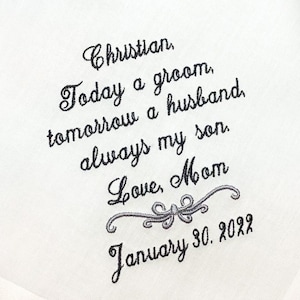 Christian,
Today a groom,
tomorrow a husband,
always my son.
Love, Mom
January 30, 2022